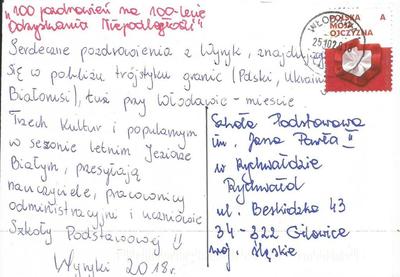 "100 pozdrowień na 100-lecie
Odzyskania Niepodległości"
Serdeczne pozdrowienia z Wyryk, znajdują
się w pobliżu trójstyku granic (Polski, Ukrain
Białorusi), tuż przy Włodawie - mieście
Trzech Kultur i popularnym
w sezonie letnim Jeziorze
Białym, przesyłają
nauczyciele, pracownicy
administracyjni i uczniowie
Szkoły Podstawowej !!
Wyryki 2018r.
WŁO
25.10.2018
POLSKA A
MOJA
OJCZYZNA
Szkoła Podstawowa
im. Jana Pawła II
w Rychwałdzie
Rychwałd
ul. Beskidzka 43
34-322 Gilowice
woj. śląskie